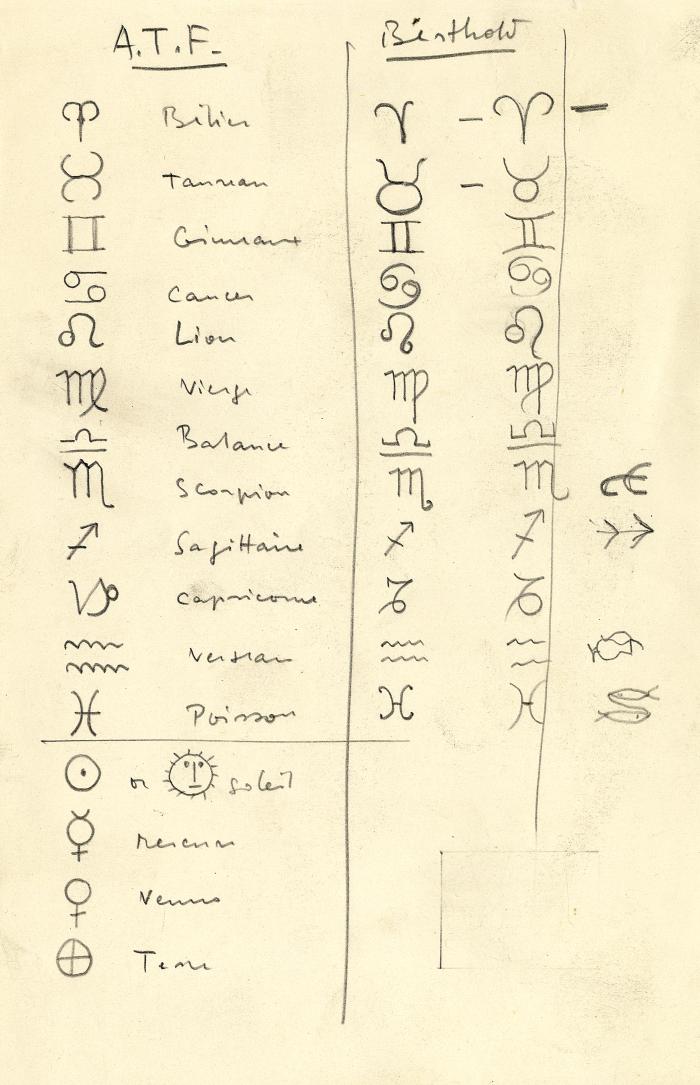 A.T.F. Berthold
♈ Bélier ♈ – ♈ –
♉ Taureau ♉ – ♉
♊ Gémeaux ♊ ♊
♋ Cancer ♋ ♋
♌ Lion ♌ ♌
♍ Vierge ♍ ♍
♎ Balance ♎ ♎
♏ Scorpion ♏ ♏
♐ Sagittaire ♐ ♐
♑ Capricorne ♑ ♑
♒ Verseau ♒ ♒
♓ Poisson ♓ ♓
☉ or soleil
☿ Mercure
♀ Venus
⊕ Terre